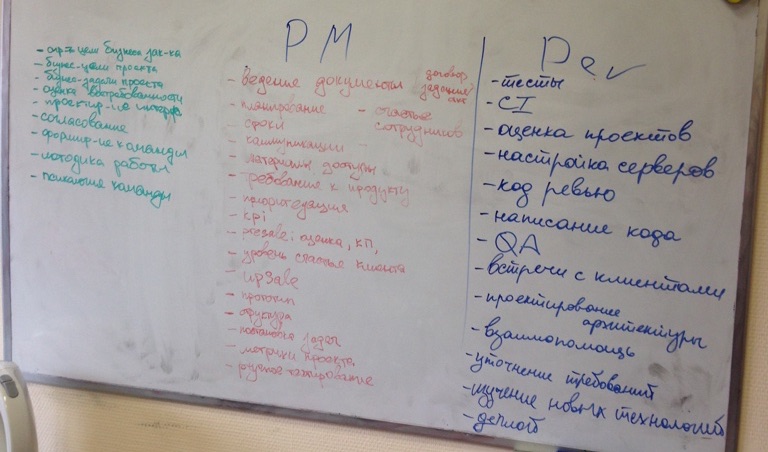 - опр-е цели бизнеса зак-ка
- бизнес-цели проекта
- бизнес-задачи проекта
- оценка востребованности
- проектир-ие интерф.
- согласование
- формир-ие команды
- методика работы
- психология команды
PM
- ведение документы договор задание акт
- планирование
- счастье сотрудников
- сроки
- коммуникации
- материалы доступы
- требования к продукту
- приоритезация
- kpi
- presale: оценка, КП,
- уровень счастья клиента
- upsale
- прототип
- структура
- постановка задач
- метрики проекта
- ручное тестирование
Dev
- тесты
- CI
- оценка проектов
- настройка серверов
- код ревью
- написание кода
- QA
- встречи с клиентами
- проектирование архитектуры
- взаимопомощь
- уточнение требований
- изучение новых технологий
- деплой